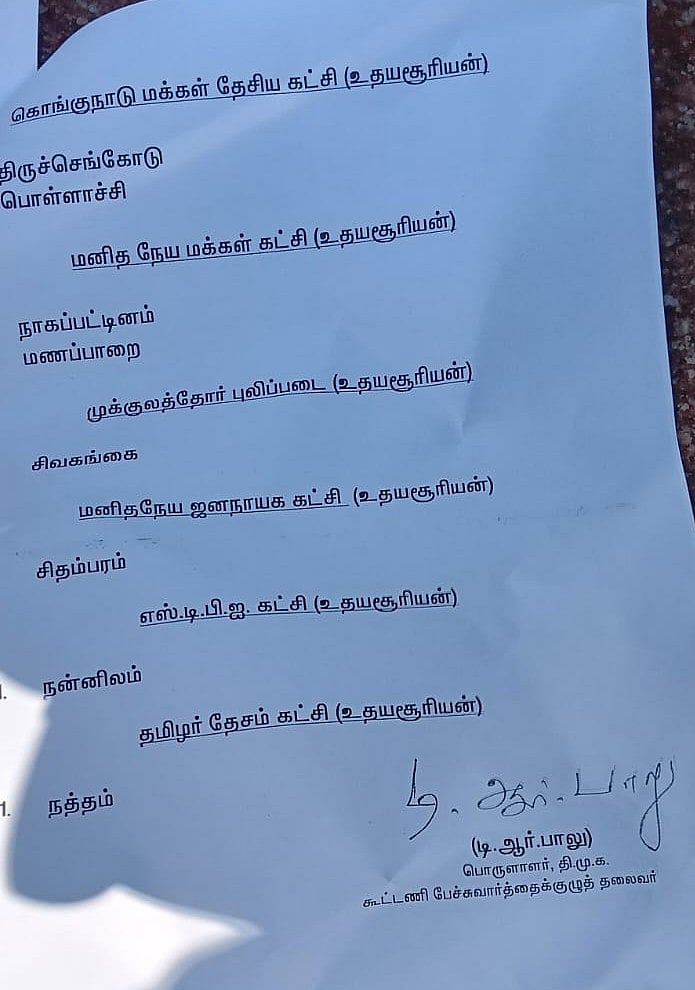 கொங்குநாடு மக்கள் தேசிய கட்சி (உதயசூரியன்)
திருச்செங்கோடு
பொள்ளாச்சி
மனித நேய மக்கள் கட்சி (உதயசூரியன்)
நாகப்பட்டினம்
மணப்பாறை
முக்குலத்தோர் புலிப்படை (உதயசூரியன்)
சிவகங்கை
மனிதநேய ஜனநாயக கட்சி (உதயசூரியன்)
சிதம்பரம்
எஸ்.டி.பி.ஐ. கட்சி (உதயசூரியன்)
நன்னிலம்
தமிழர் தேசம் கட்சி (உதயசூரியன்)
1. நத்தம்
டி. ஆர். பாலு
(டி.ஆர்.பாலு)
பொருளாளர், தி.மு.க.
கூட்டணி பேச்சுவார்த்தைக்குழுத் தலைவர்